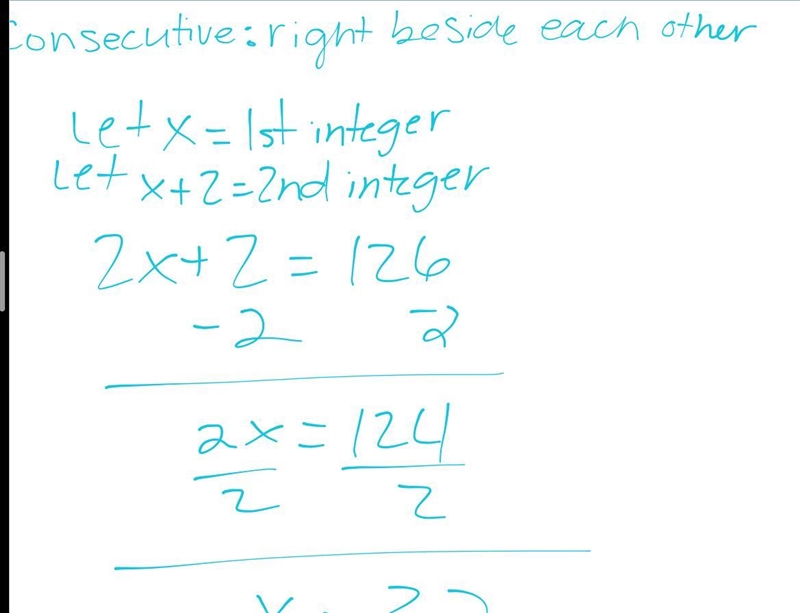 consecutive: right beside each other
Let x = 1st integer
Let x+2 = 2nd integer
2x+2 = 126
-2 -2
2x = 124
2 2